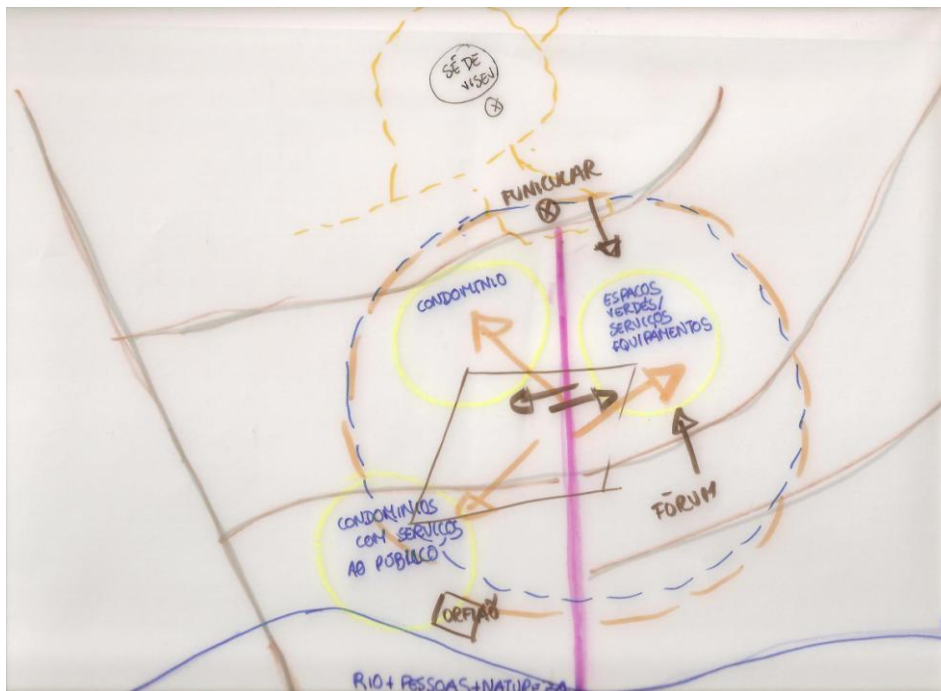 SÉ DE
VISEU
FUNICULAR
CONDOMINIO
ESPAÇOS
VERDES/
SERVIÇOS
EQUIPAMENTOS
FÓRUM
CONDOMINIOS
COM SERVIÇOS
AO PÚBLICO
ORFEÃO
RIO + PESSOAS + NATUREZA